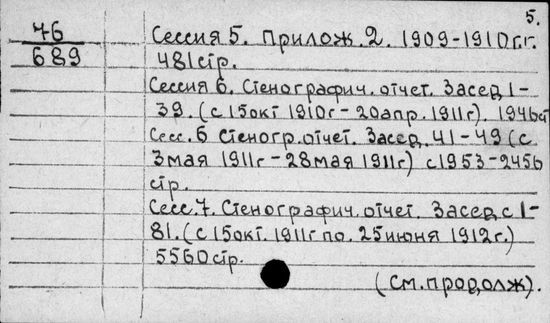 5.
46
689
Сессия 5. Прилож. 2. 1909-1910г.г.
481стр.
Сессия 6. Стенографич. отчет. Засед 1-
39. (с 15окт 1910г-20апр. 1911г). 1946ст
Сесс. 6 Стеногр. отчет. Засед. 41-49 (с
3мая 1911г-28мая 1911г) с1953-2456
стр.
Сесс. 7. Стенографич. отчет. Засед с 1-
81. (с 15окт. 1911г по. 25июня 1912г.)
5560стр.
(См. продолж).